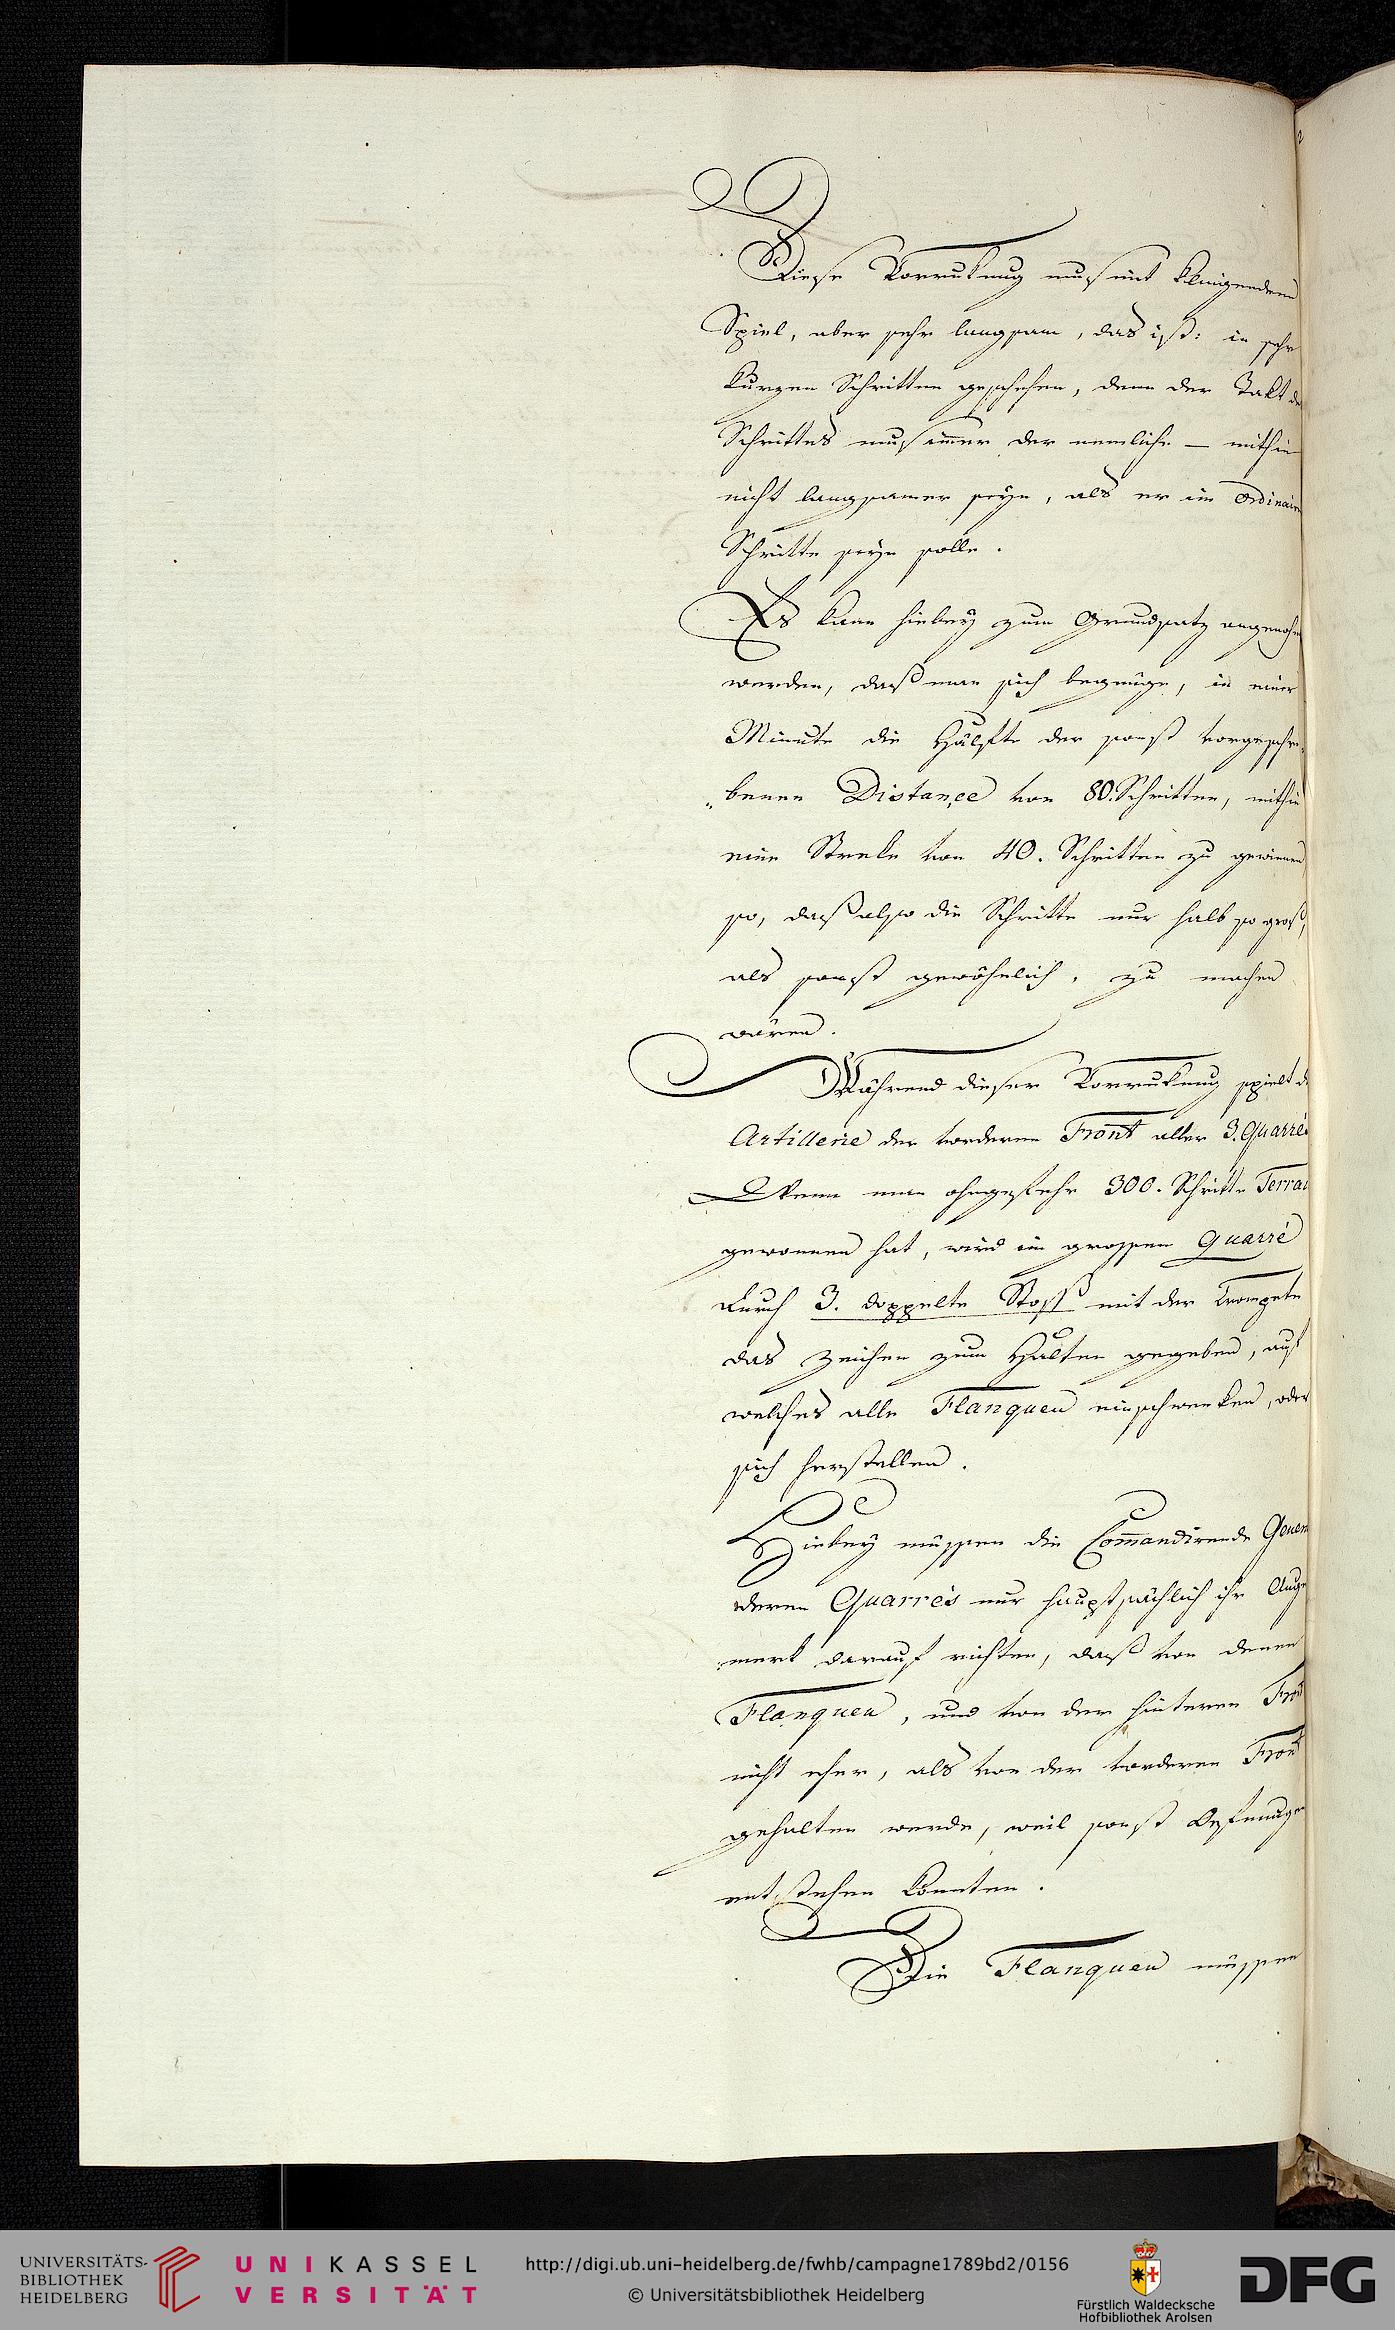 Diese Vorrukung muß mit klingendem
Spiel, aber sehr langsam, das ist: in sehr
kurzen Schritten geschehen, denn der Takt de
Schrittes muß im̄er der nemliche — mithin
nicht langsamer seyn, als er im Ordinair
Schritte seyn solle.
Es kann hiebey zum Grundsatz angenohm
werden, daß man sich begnüge, in einer
Minute die Hälfte der sonst vorgeschrie-
„benen Distance von 80. Schritten, mithin
eine Streke von 40. Schritten zu gewinnen
so, daß also die Schritte nur halb so groß,
als sonst gewöhnlich, zu machen
wären.
Während dieser Vorrukung spielt d
Artillerie der vorderen Front aller 3. Quarrés
Wenn man ohngefehr 300. Schritte Terrai
gewonnen hat, wird im grossen Quarré
durch 3. doppelte Stoß mit der Trompete
das Zeichen zum Halten gegeben, auf
welches alle Flanquen einschwenken, oder
sich herstellen.
Hiebey müssen die Com̄andirende Gener
deren Quarrés nur hauptsächlich ihr Auge
merk darauf richten, daß von denen
Flanquen, und von der hinteren Fron
nicht eher, als von der vorderen Front
gehalten werde, weil sonst Oefnungen
entstehen könnten.
Die Flanquen müssen
UNIVERSITÄTS-
BIBLIOTHEK
HEIDELBERG
UNIKASSEL
VERSITÄT
http://digi.ub.uni-heidelberg.de/fwhb/campagne1789bd2/0156
© Universitätsbibliothek Heidelberg
Fürstlich Waldecksche
Hofbibliothek Arolsen
DFG